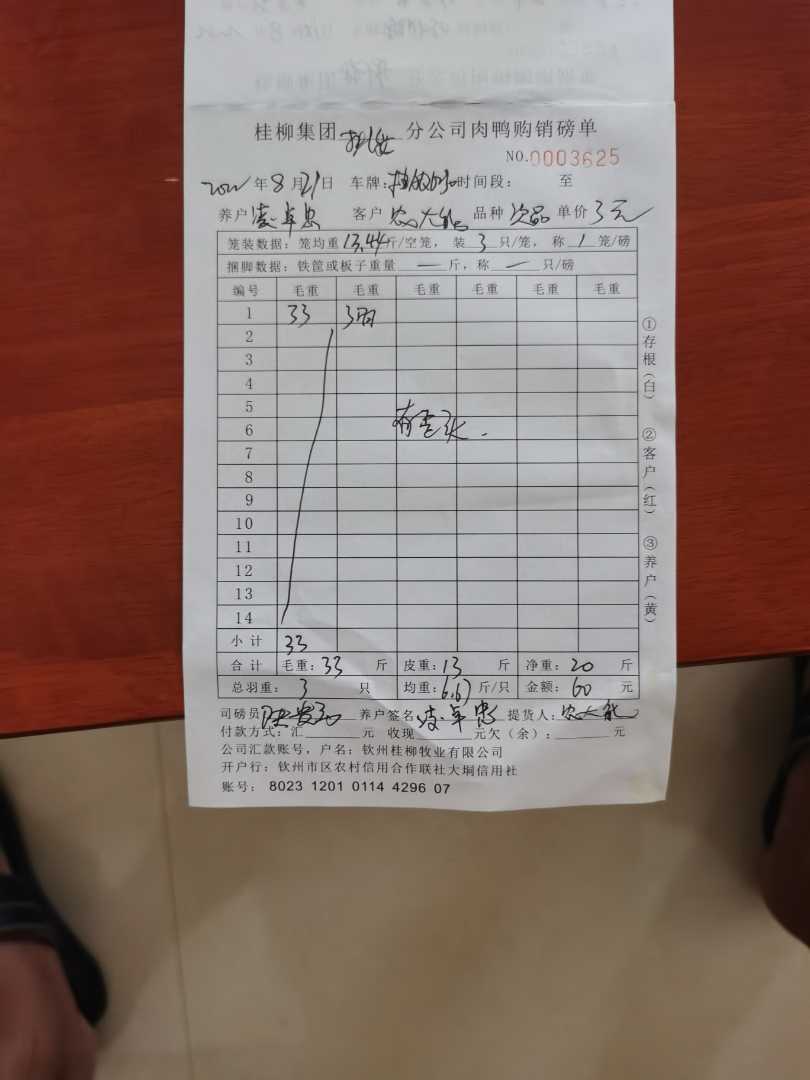 桂柳集团 分公司肉鸭购销磅单
NO.0003625
年 8 月 21 日 车牌: 时间段: 至
养户 凌卓忠 客户 农大能 品种 次品 单价 3元
笼装数据: 笼均重 13.44 斤/空笼, 装 3 只/笼, 称 1 笼/磅
捆脚数据: 铁筐或板子重量 — 斤, 称 — 只/磅
编号 毛重 毛重 毛重 毛重 毛重 毛重
1 33 3羽
2
3
4
5
6
7
8
9
10
11
12
13
14
小计 33
合计 毛重: 33 斤 皮重: 13 斤 净重: 20 斤
总羽重: 3 只 均重: 6.67 斤/只 金额: 60 元
司磅员 养户签名 凌卓忠 提货人: 农大能
付款方式: 汇 元 收现 元欠(余): 元
公司汇款账号, 户名: 钦州桂柳牧业有限公司
开户行: 钦州市区农村信用合作联社大垌信用社
账号: 8023 1201 0114 4296 07
①存根(白) ②客户(红) ③养户(黄)